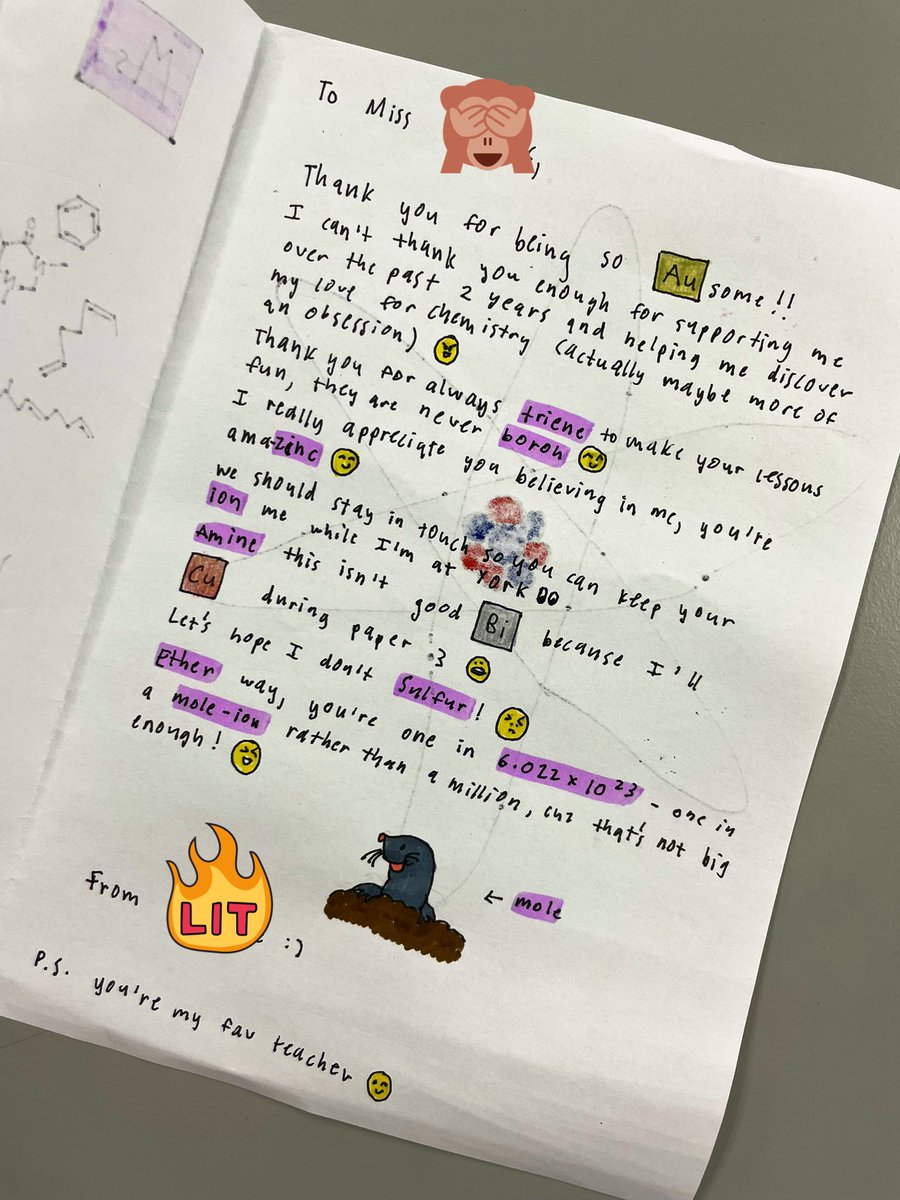 Ms
To Miss
Thank you for being so Au some!!
I can't thank you enough for supporting me
over the past 2 years and helping me discover
my love for chemistry (actually maybe more of
an obsession)
Thank you for always triene to make your lessons
fun, they are never boron
I really appreciate you believing in me, you're
ama-zinc
we should stay in touch so you can keep your
ion me while I'm at York
Amine this isn't good Bi because I'll
Cu during paper 3
Let's hope I don't Sulfur!
Ether way, you're one in 6.022 x 10 23 - one in
a mole-ion rather than a million, cuz that's not big
enough!
From LIT :)
← mole
P.S. you're my fav teacher